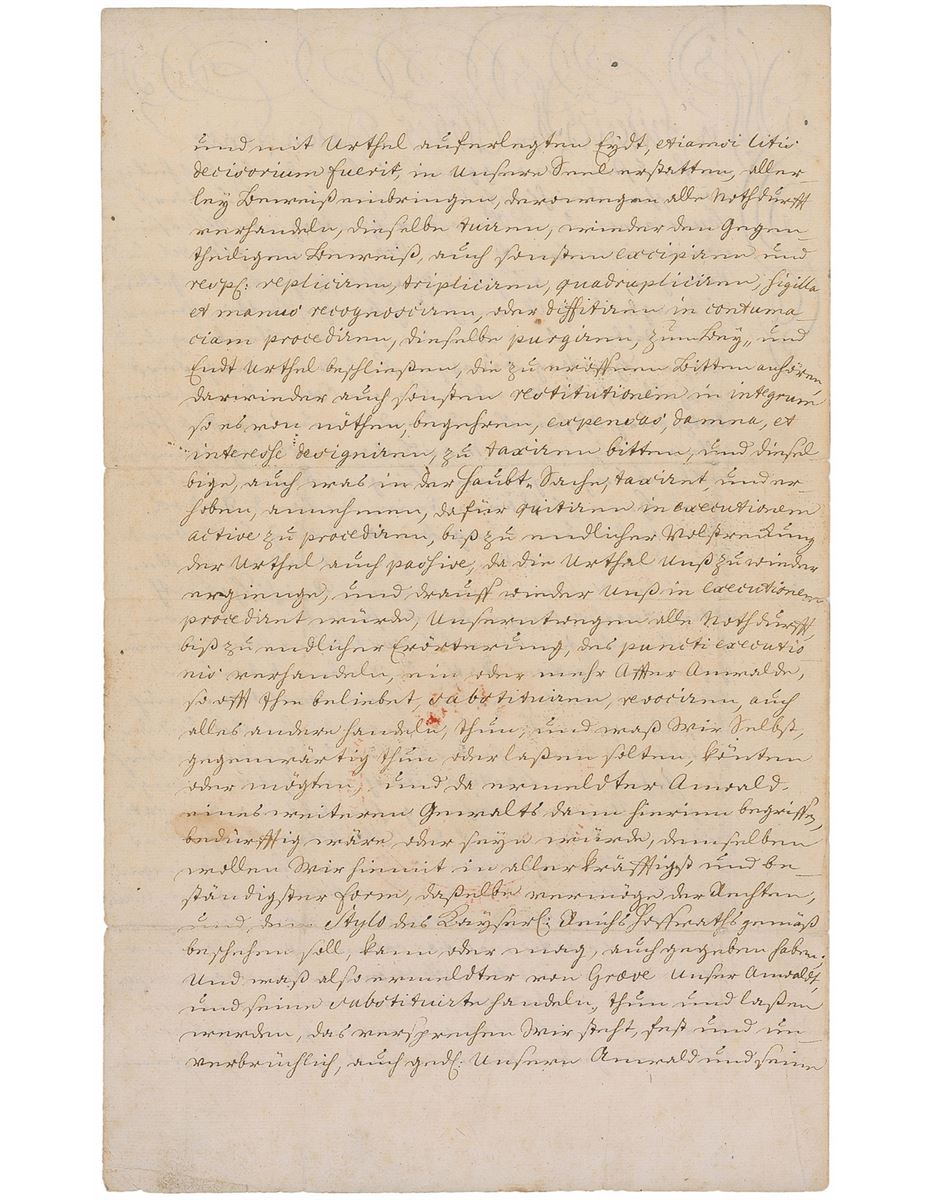 und mit Urthel auferlegten Eydt, etiamsi litis
decisorium fuerit, in Unsere Seel erstatten, aller-
ley Beweiß einbringen, derowegen alle Nothdurfft
verhandeln, dieselbe tuiren, wieder den Gegen-
theiligen Beweiß, auch sonsten excipiren und
resp: repliciren, tripliciren, quadrupliciren, Sigilla
et manus recognosciren, oder diffitiren in contuma
ciam procediren, dieselbe purgiren, zum Bey- und
Endt Urthel beschließen, die zu eröffnen Bitten anhören,
darwieder auch sonsten restitutionem in integrum
so es von nöthen, begehren, expensas, damna, et
interesse designiren, zu taxiren bitten, und diesel-
bige, auch was in der Haubt-Sache, taxiret, und er-
hoben, annehmen, dafür quitiren in executionem
active zu procediren, biß zu endlicher Volstreckung
der Urthel, auch passive, da die Urthel Unß zu wieder
ergienge, und drauff wieder Unß in executionem
procediret würde, Unsertwegen alle Nothdurfft,
biß zu endlicher Erörterung, des puncti executio
nis verhandeln, ein oder mehr Affter Anwalde,
so offt Ihm beliebet, substituiren, revociren, auch
alles andere handeln, thun, und waß Wir Selbst,
gegenwärtig thun oder laßen solten, könten
oder mögten, und da ermeldter Anwald.
eines weiteren Gewalts dann hierinn begriffen,
bedürfftig wäre oder seyn würde, demselben
wollen Wir hiemit in allerkräfftigst und be-
ständigster form, daßelbe vermöge der Rechten,
und dem Stylo des Kayserl: Reichs Hoffraths gemäß
beschehen soll, kann oder mag, auch gegeben haben.
Und waß also ermeldter von Græve Unser Anwaldt,
und seine substituirte handeln, thun und laßen
werden, das versprechen Wir steht, fest und un-
verbrüchlich, auch gedl: Unsern Anwald und seine